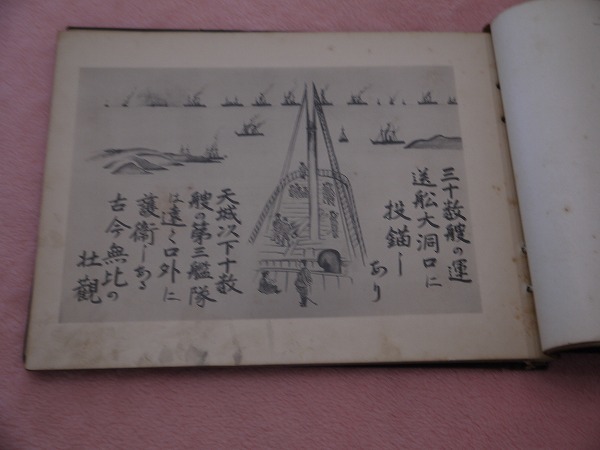 三十数艘の運
送舩大洞口に
投錨し
あり
天城以下十数
艘の第三艦隊
は遠く口外に
護衛しある
古今無比の
壮觀